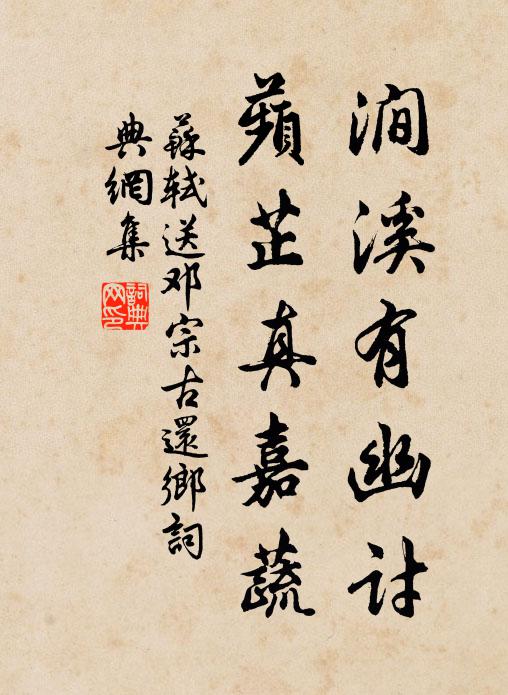 澗溪有幽討
蘋芷真嘉蔬
蘇軾送邓宗古還鄉詞
典網集
詞典
网印